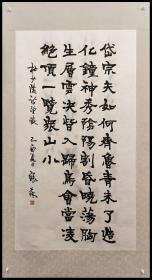 岱宗夫如何齊魯青未了造
化鐘神秀陰陽割昏曉蕩胸
生層雲決眥入歸鳥會當凌
絕頂一覽眾山小
杜少陵詩望嶽